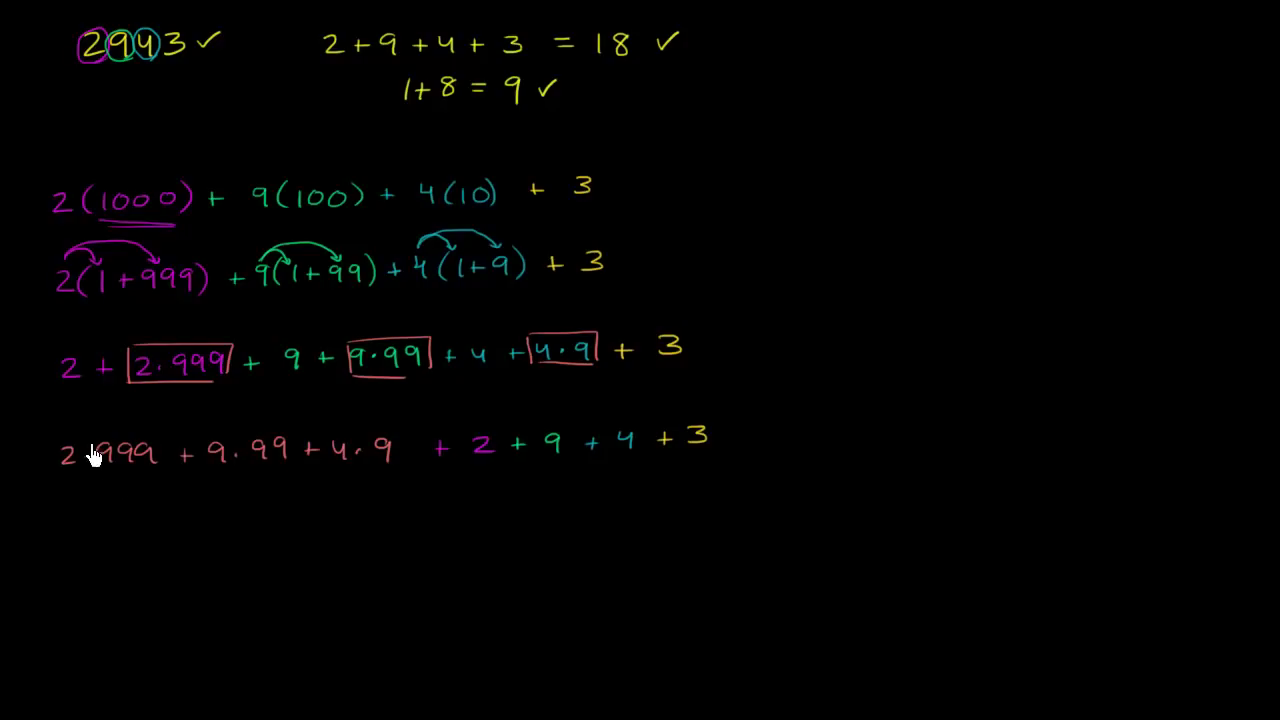 2943 ✓ 2 + 9 + 4 + 3 = 18 ✓
1 + 8 = 9 ✓
2(1000) + 9(100) + 4(10) + 3
2(1+999) + 9(1+99) + 4(1+9) + 3
2 + 2·999 + 9 + 9·99 + 4 + 4·9 + 3
2·999 + 9·99 + 4·9 + 2 + 9 + 4 + 3